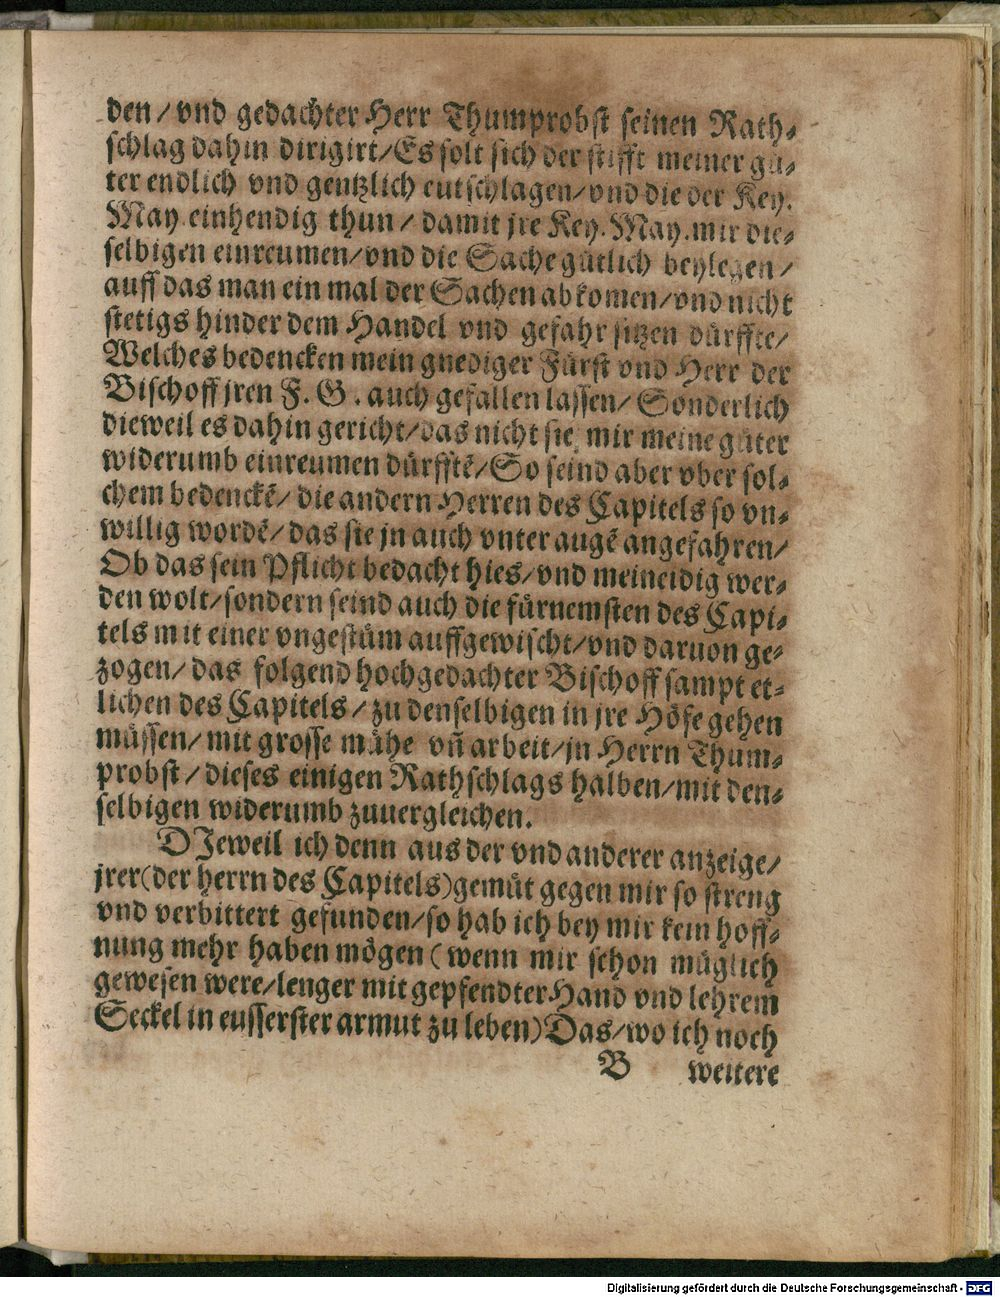 den / vnd gedachter Herr Thumprobst seinen Rath-
schlag dahin dirigirt / Es solt sich der stifft meiner gü-
ter endlich vnd gentzlich eutschlagen / vnd die der Key.
May. einhendig thun / damit jre Key. May. mir die-
selbigen einreumen / vnd die Sache gütlich beylegen /
auff das man ein mal der Sachen abkomen / vnd nicht
stetigs hinder dem Handel vnd gefahr sitzen dürffte /
Welches bedencken mein gnediger Fürst vnd Herr der
Bischoff jren F. G. auch gefallen lassen / Sonderlich
dieweil es dahin gericht / das nicht sie mir meine güter
widerumb einreumen dürfftē / So seind aber vber sol-
chem bedenckē / die andern Herren des Capitels so vn-
willig wordē / das sie jn auch vnter augē angefahren /
Ob das sein Pflicht bedacht hies / vnd meineidig wer-
den wolt / sondern seind auch die fürnemsten des Capi-
tels mit einer vngestüm auffgewischt / vnd daruon ge-
zogen / das folgend hochgedachter Bischoff sampt et-
lichen des Capitels / zu denselbigen in jre Höfe gehen
müssen / mit grosse mühe vñ arbeit / jn Herrn Thum-
probst / dieses einigen Rathschlags halben / mit den-
selbigen widerumb zuuergleichen.
DJeweil ich denn aus der vnd anderer anzeige /
jrer (der herrn des Capitels) gemüt gegen mir so streng
vnd verbittert gefunden / so hab ich bey mir kein hoff-
nung mehr haben mögen (wenn mir schon müglich
gewesen were / lenger mit gepfendter Hand vnd lehrem
Seckel in eusserster armut zu leben) Das / wo ich noch
B weitere
Digitalisierung gefördert durch die Deutsche Forschungsgemeinschaft - DFG